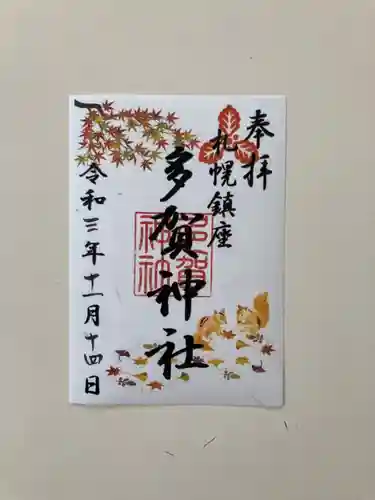 奉拝
札幌鎮座
多賀神社
多賀神社
令和三年十一月十四日